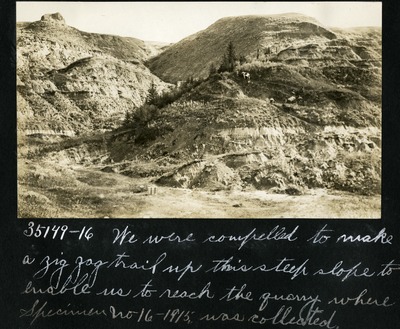 35149-16 We were compelled to make
a zig zag trail up this steep slope to
enable us to reach the quarry where
Specimen No 16-1915, was collected.